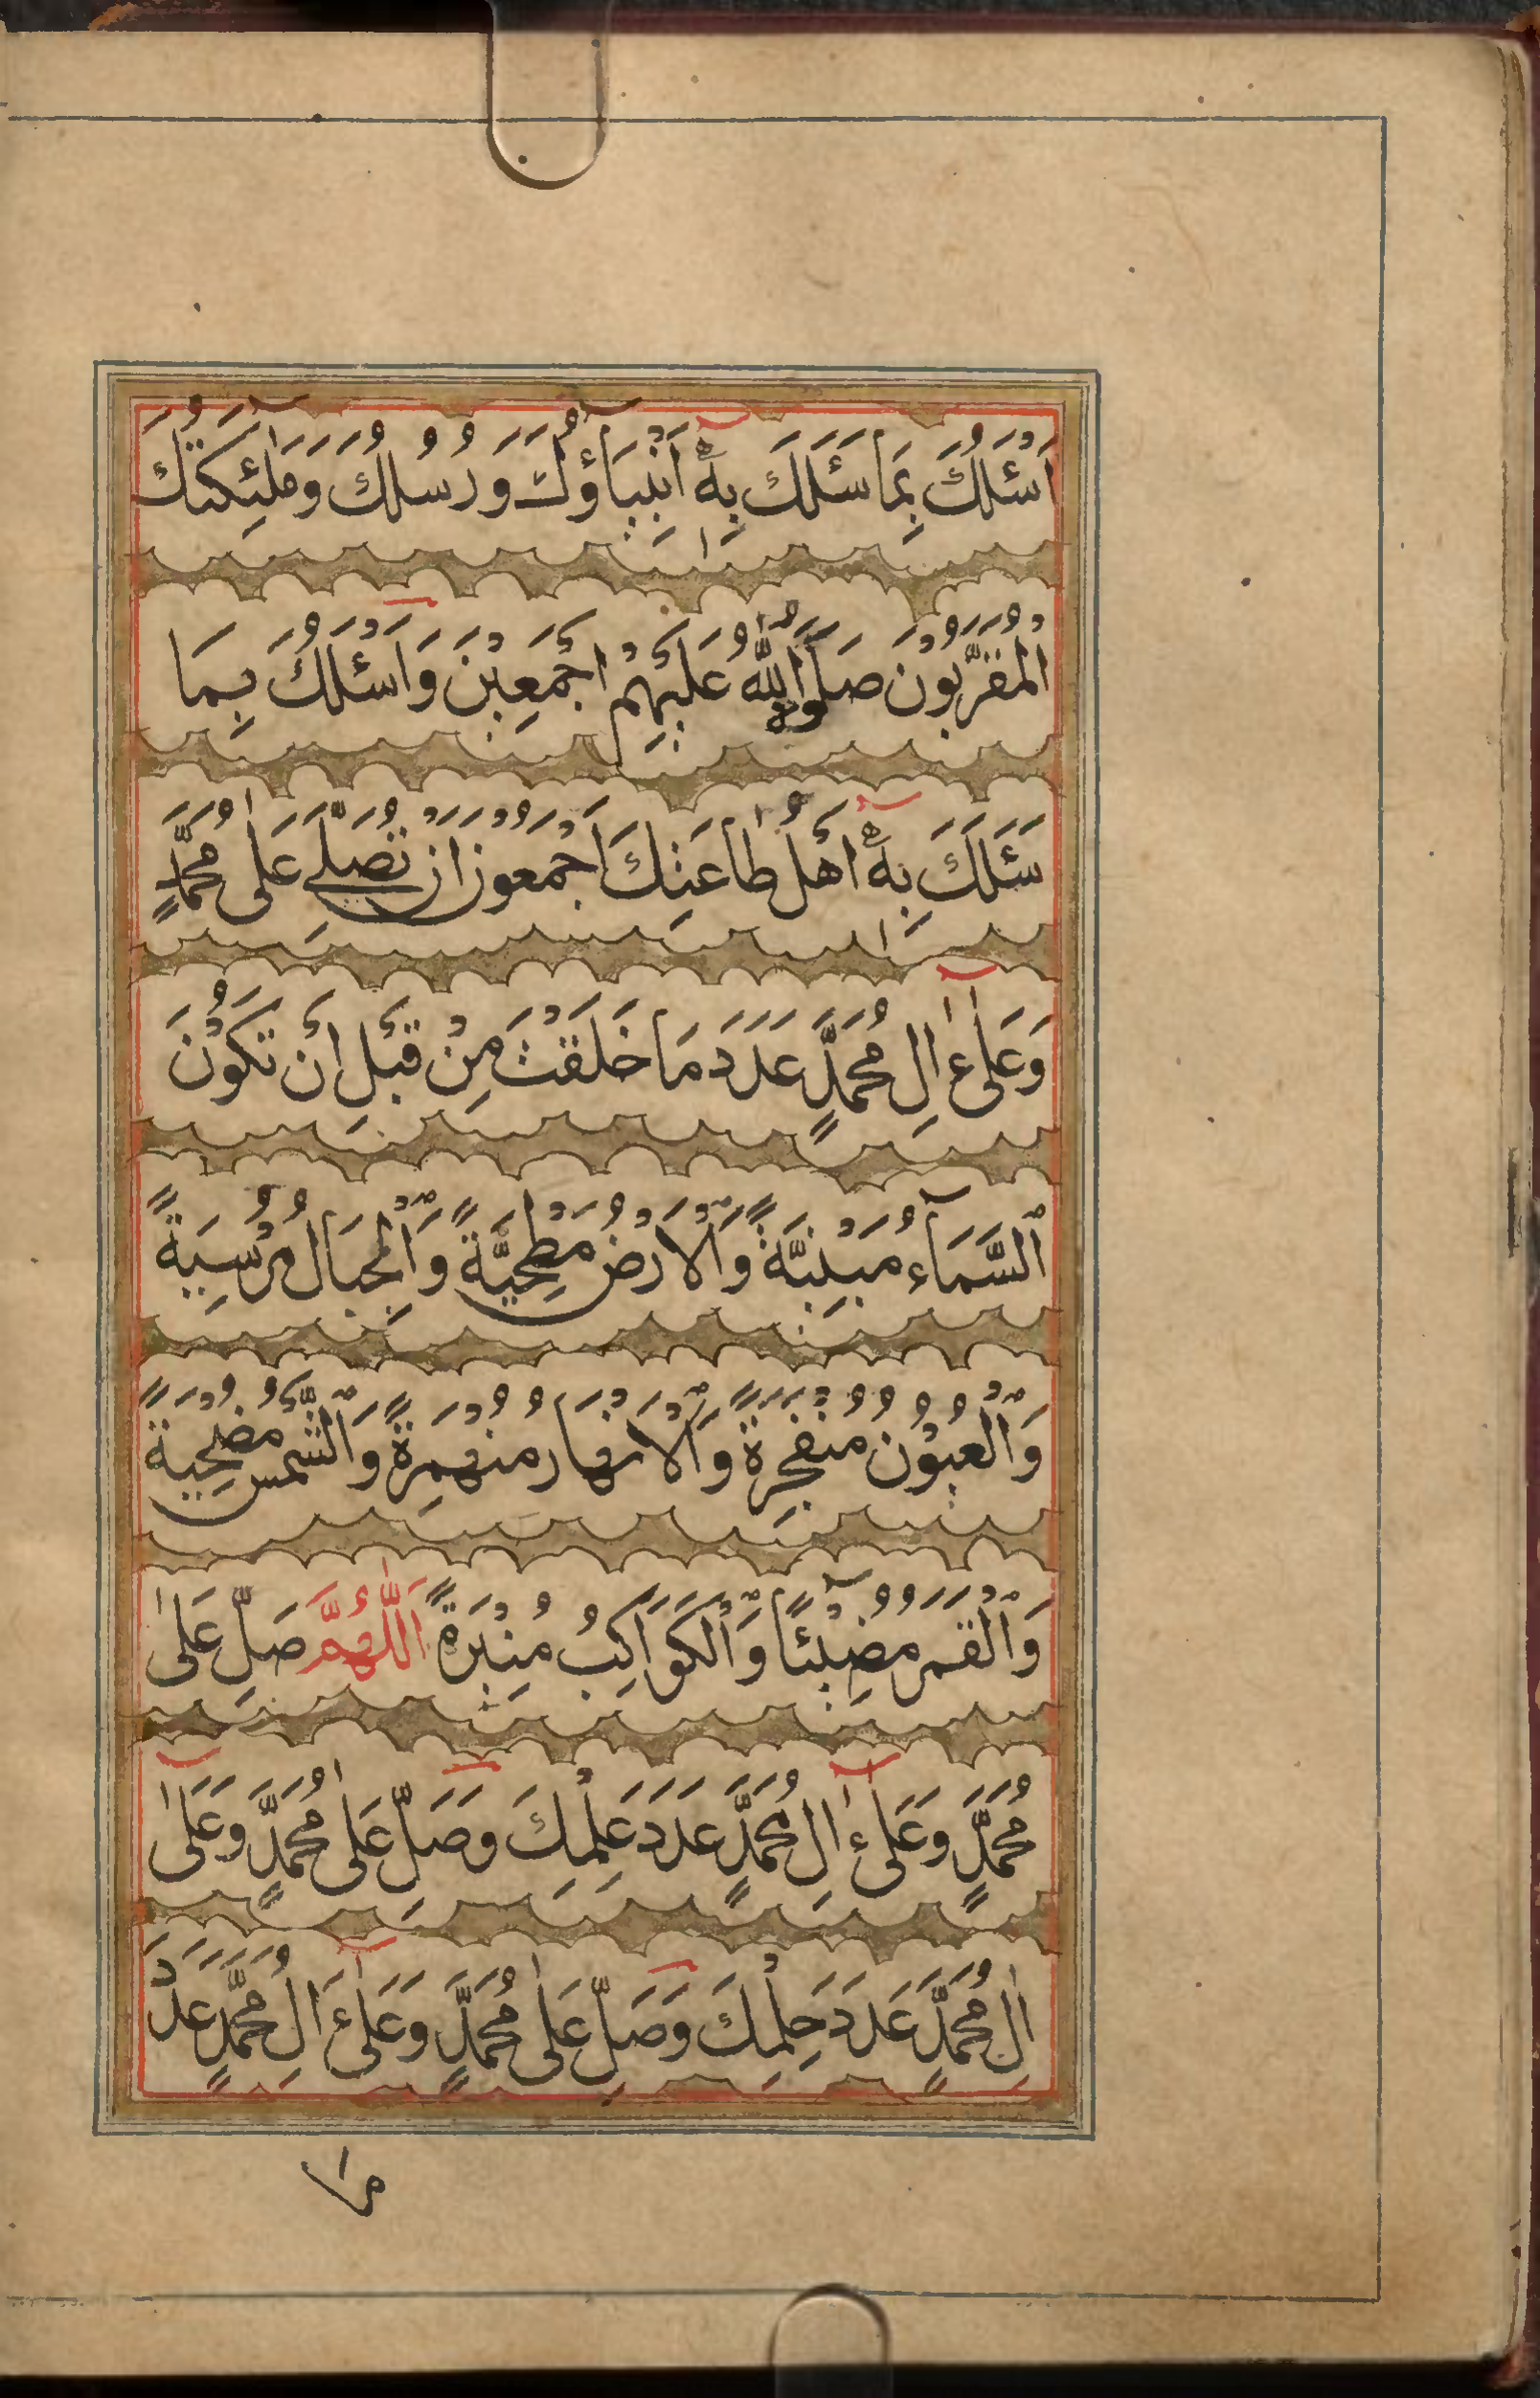 اَسْئَلُكَ بِمَا سَئَلَكَ بِهٖٓ اَنْۢبِيَآؤُكَ وَرُسُلُكَ وَمَلٰٓئِكَتُكَ
الْمُقَرَّبُوْنَ صَلَوٰةُ اللّٰهِ عَلَيْهِمْ اَجْمَعِيْنَ وَاَسْئَلُكَ بِمَا
سَئَلَكَ بِهٖٓ اَهْلُ طَاعَتِكَ اَجْمَعُوْنَ اَنْ تُصَلِّيَ عَلٰى مُحَمَّدٍ
وَعَلٰٓى اٰلِ مُحَمَّدٍ عَدَدَ مَا خَلَقْتَ مِنْ قَبْلِ اَنْ تَكُوْنَ
السَّمَآءُ مَبْنِيَّةً وَّالْاَرْضُ مَطْحِيَّةً وَّالْجِبَالُ مُرْسِيَةً
وَّالْعُيُوْنُ مُنْفَجِرَةً وَّالْاَنْهَارُ مُنْهَمِرَةً وَّالشَّمْسُ مُضْحِيَةً
وَّالْقَمَرُ مُضِيْئًا وَّالْكَوَاكِبُ مُنِيْرَةً اَللّٰهُمَّ صَلِّ عَلٰى
مُحَمَّدٍ وَعَلٰٓى اٰلِ مُحَمَّدٍ عَدَدَ عِلْمِكَ وَصَلِّ عَلٰى مُحَمَّدٍ وَعَلٰٓى
اٰلِ مُحَمَّدٍ عَدَدَ حِلْمِكَ وَصَلِّ عَلٰى مُحَمَّدٍ وَعَلٰٓى اٰلِ مُحَمَّدٍ عَدَدَ